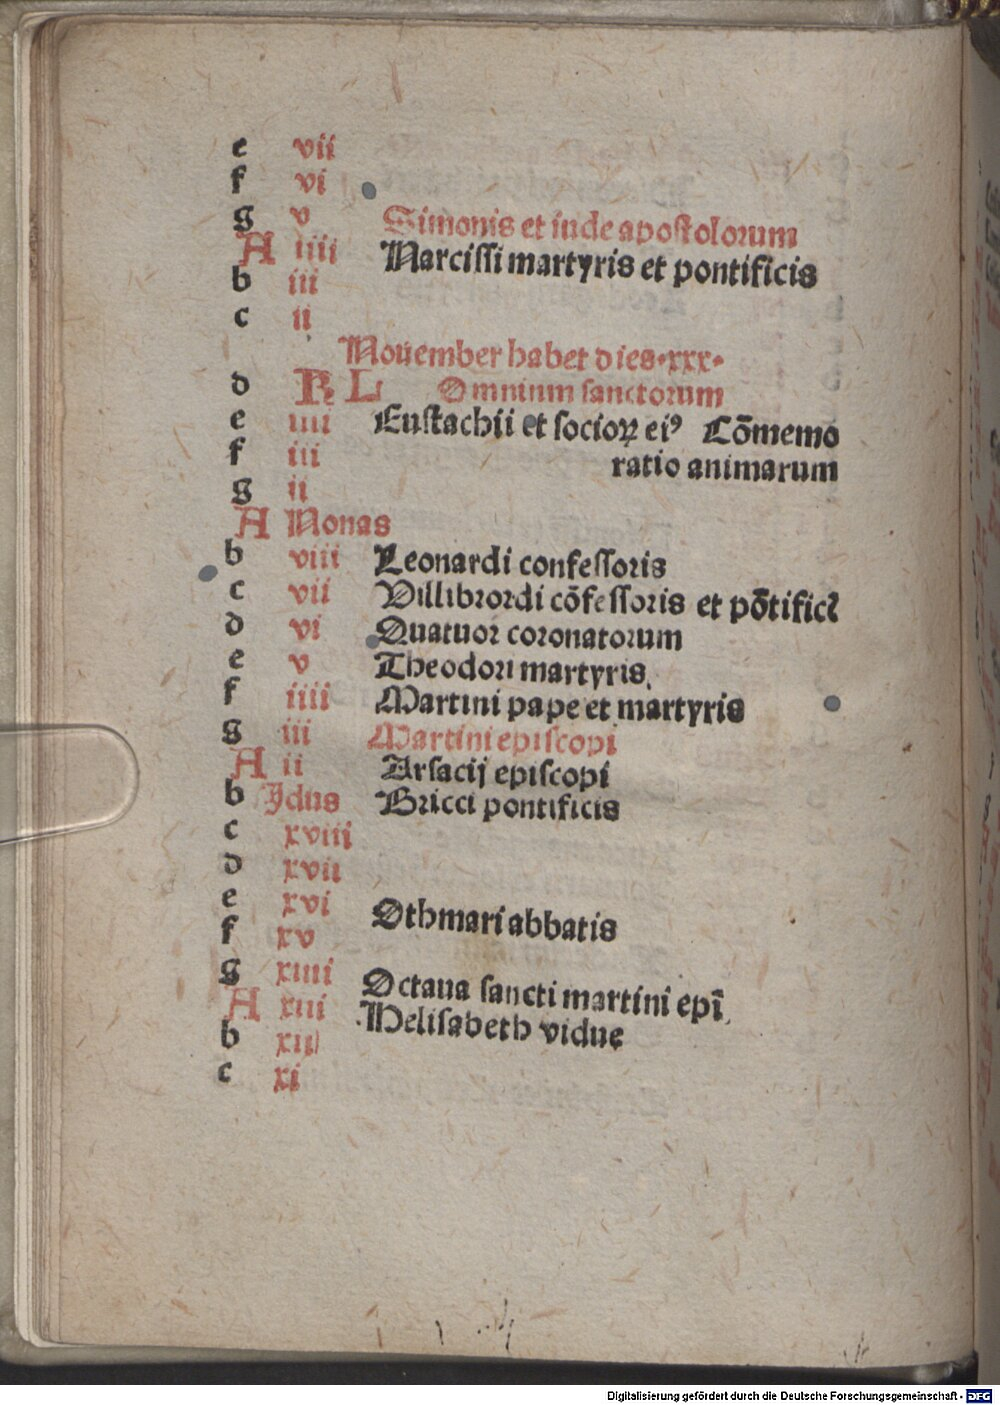 e vii
f vi
g v Simonis et iude apostolorum
A iiii Narcissi martyris et pontificis
b iii
c ii
Nouember habet dies·xxx·
d KL Omnium sanctorum
e iiii Eustachii et socioꝝ eiꝰ Cōmemo
f iii ratio animarum
g ii
A Nonas
b viii Leonardi confessoris
c vii Villibrordi cōfessoris et pōtificis
d vi Quatuor coronatorum
e v Theodori martyris.
f iiii Martini pape et martyris
g iii Martini episcopi
A ii Arsacij episcopi
b Jdus Bricci pontificis
c xviii
d xvii
e xvi Othmari abbatis
f xv
g xiiii Octaua sancti martini epī.
A xiii Helisabeth vidue
b xii
c xi
Digitalisierung gefördert durch die Deutsche Forschungsgemeinschaft - DFG